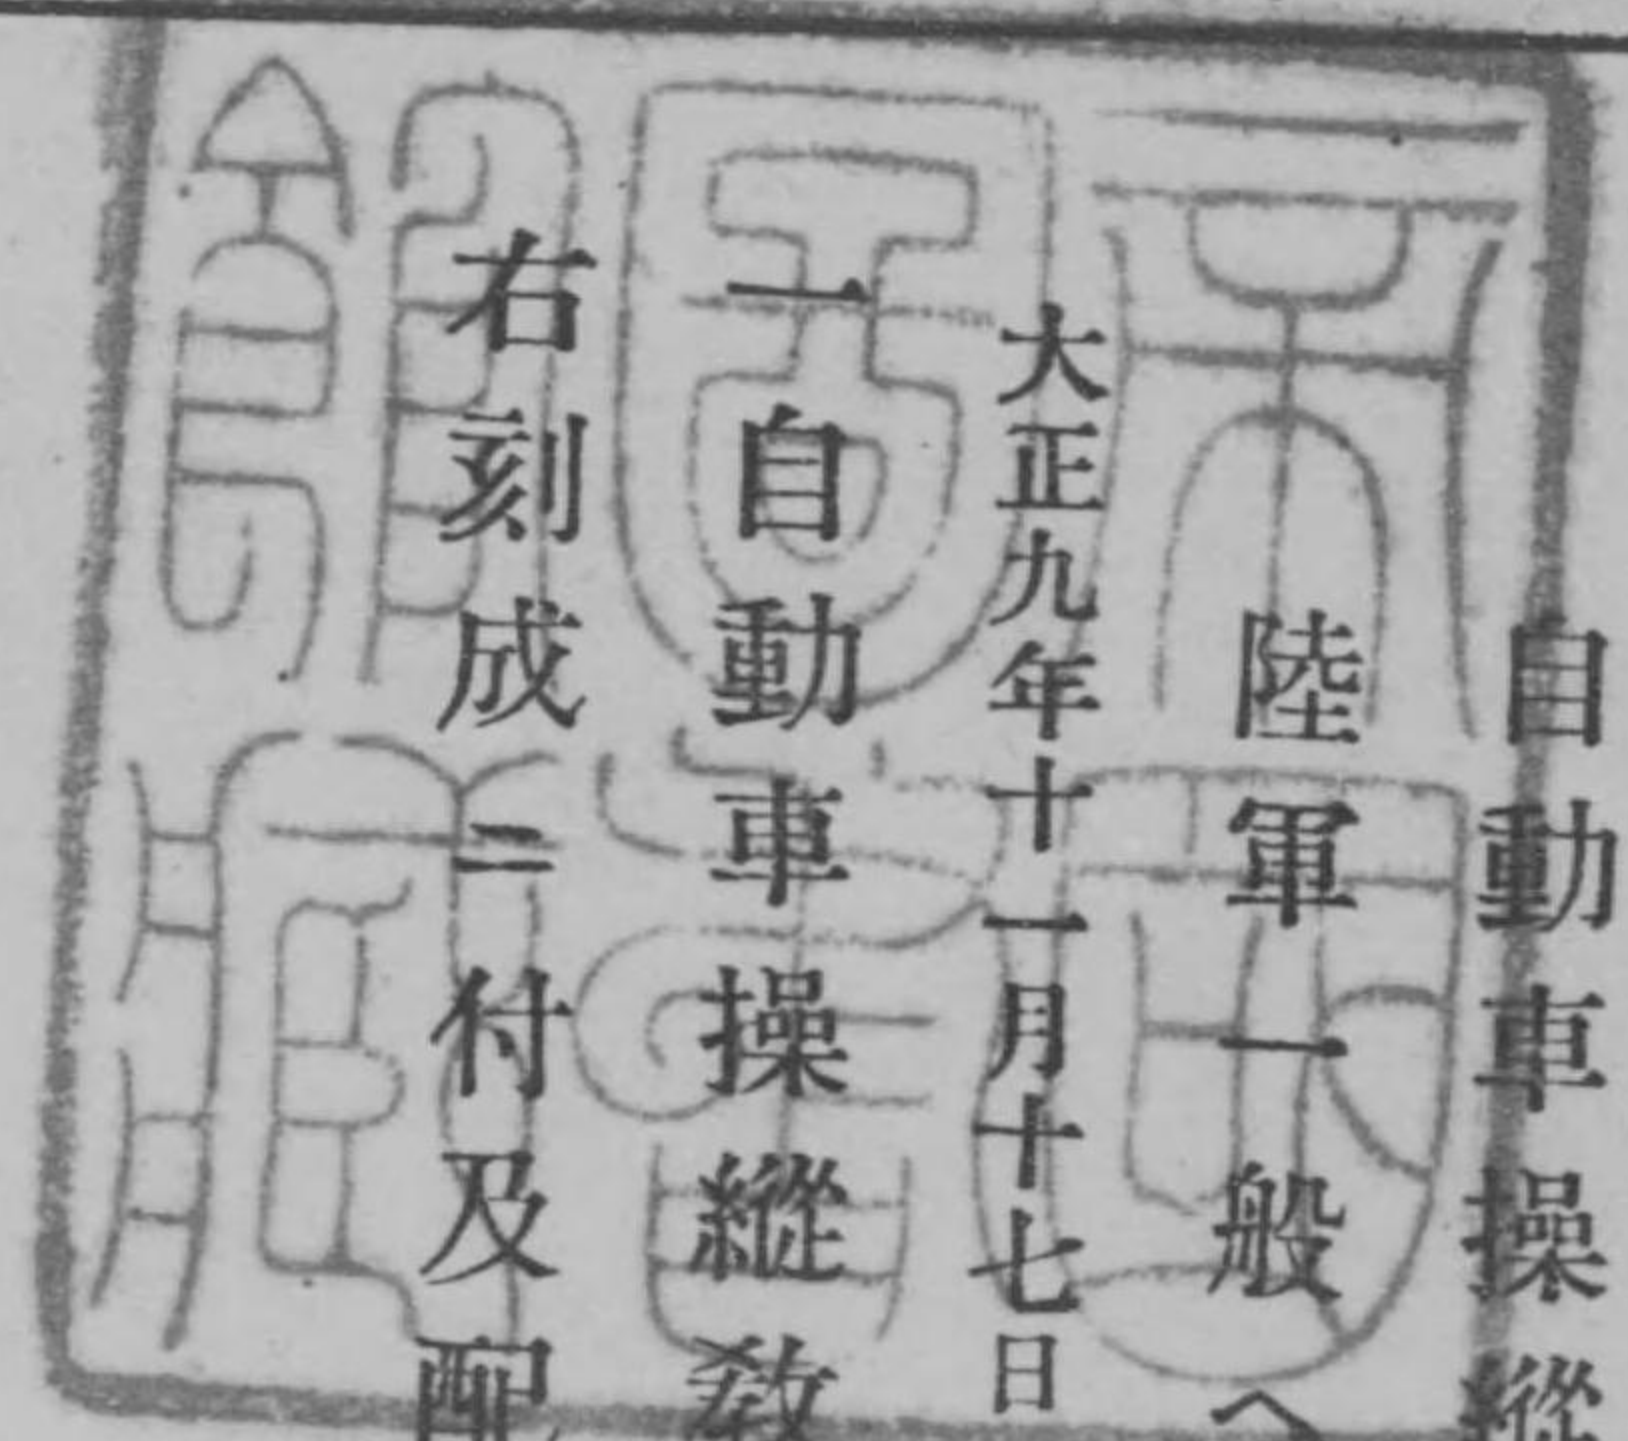 自動車操縱
陸軍一般へ
大正九年十一月十七日
一自動車操縱教
右刻成ニ付及配
帝國
圖書
館藏